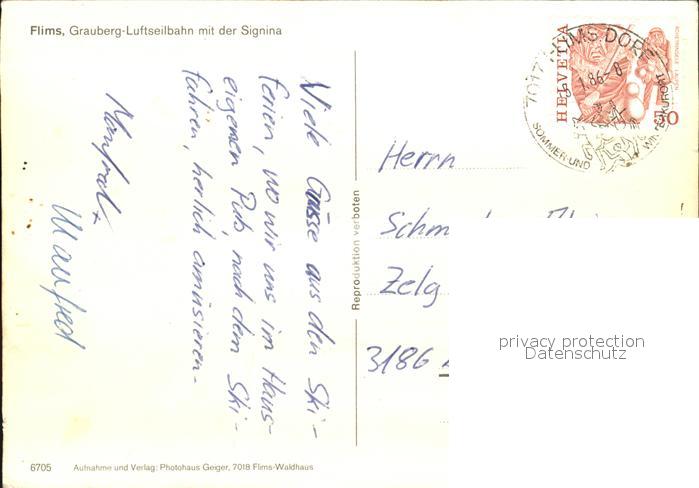 Flims, Grauberg-Luftseilbahn mit der Signina
Viele Grüsse aus den Ski-
ferien, wo wir uns im Haus-
eigenen Pub, nach dem Ski-
fahren, herlich amüsieren.
Manfred
Reproduktion verboten
HELVETIA
FLIMS DORF
7017
1.86-8
SOMMER UND
WINTERKURORT
50
Herrn
Zelg
3186
privacy protection
Datenschutz
6705 Aufnahme und Verlag: Photohaus Geiger, 7018 Flims-Waldhaus